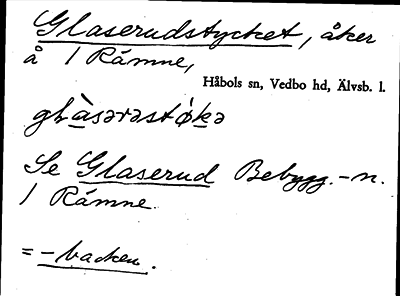 Glaserudstycket, åker
å 1 Råmne,
Håbols sn, Vedbo hd, Älvsb. l.
gḷàsərəstø̀kə
Se Glaserud Bebygg.-n.
1 Råmne.
= -backen.